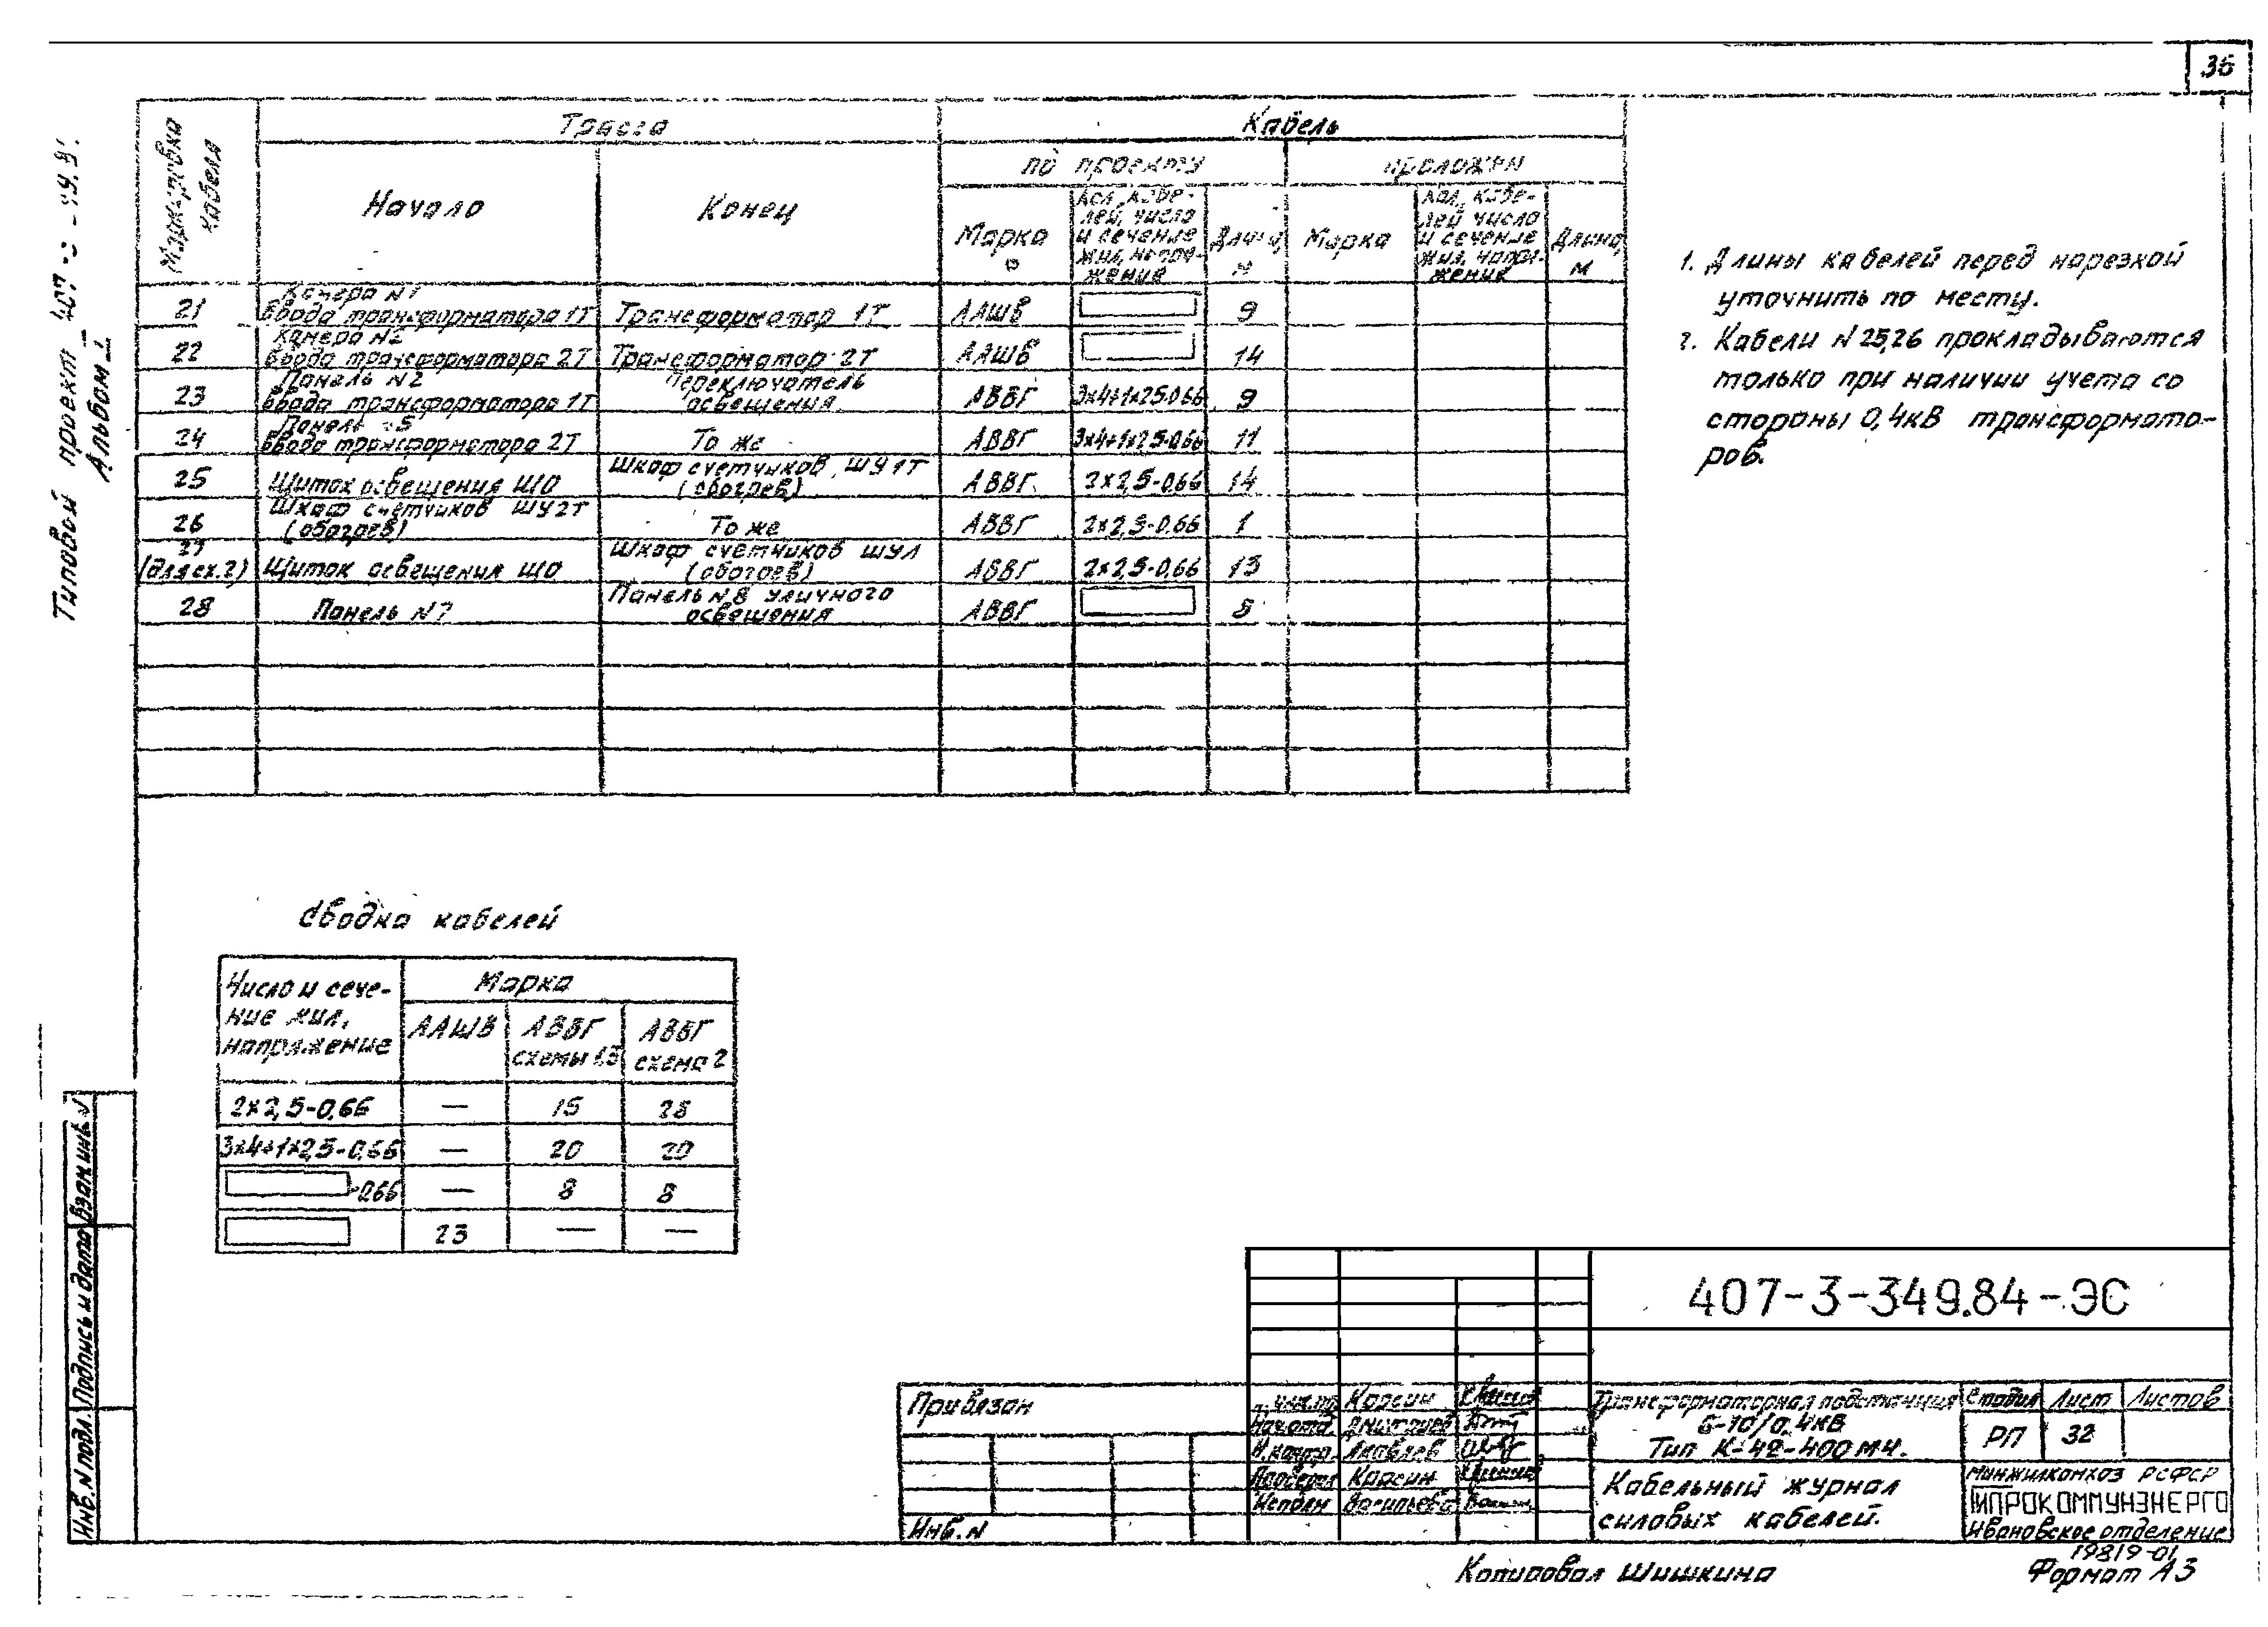 36
Типовой проект 407-3-349.84
Альбом 1
Маркировка кабеля
Трасса
Кабель
по проекту
проложен
Начало
Конец
Марка
Кол. кабе-
лей, число
и сечение
жил, напря-
жения
Длина, м
Марка
Кол. кабе-
лей число
и сечение
жил. напря-
жения
Длина, м
21 Камера N1 ввода трансформатора 1Т Трансформатор 1Т ААШВ 9
22 Камера N2 ввода трансформатора 2Т Трансформатор 2Т ААШВ 14
23 Панель N2 ввода трансформатора 1Т Переключатель освещения АВВГ 3х4+1х2,5-0,66 9
24 Панель N5 ввода трансформатора 2Т То же АВВГ 3х4+1х2,5-0,66 11
25 Щиток освещения ЩО Шкаф счетчиков ШУ1Т (обогрев) АВВГ 2х2,5-0,66 14
26 Шкаф счетчиков ШУ2Т (обогрев) То же АВВГ 2х2,5-0,66 1
27 (для сх. 2) Щиток освещения ЩО Шкаф счетчиков ШУЛ (обогрев) АВВГ 2х2,5-0,66 13
28 Панель N7 Панель N8 уличного освещения АВВГ 8
1. Длины кабелей перед нарезкой
уточнить по месту.
2. Кабели N 25,26 прокладываются
только при наличии учета со
стороны 0,4кВ трансформато-
ров.
Сводка кабелей
Число и сече-
ние жил,
напряжение
Марка
ААШВ
АВВГ схемы 1,3
АВВГ схема 2
2х2,5-0,66 — 15 28
3х4+1х2,5-0,66 — 20 20
-0,66 — 8 8
23 — —
Взам инв. N
Подпись и дата
Инв. N подл.
407-3-349.84-ЭС
Привязан
Инв. N
Карсин
Нач.отд. Дмитриев
Н.контр. Яковлев
Проверил Карсин
Исполн Васильева
Трансформаторная подстанция
6-10/0,4кВ
Тип К-42-400М4.
Стадия Лист Листов
РП 32
Кабельный журнал
силовых кабелей.
Минжилкомхоз РСФСР
ГИПРОКОММУНЭНЕРГО
Ивановское отделение
19819-01
Копировал Шишкина
Формат А3